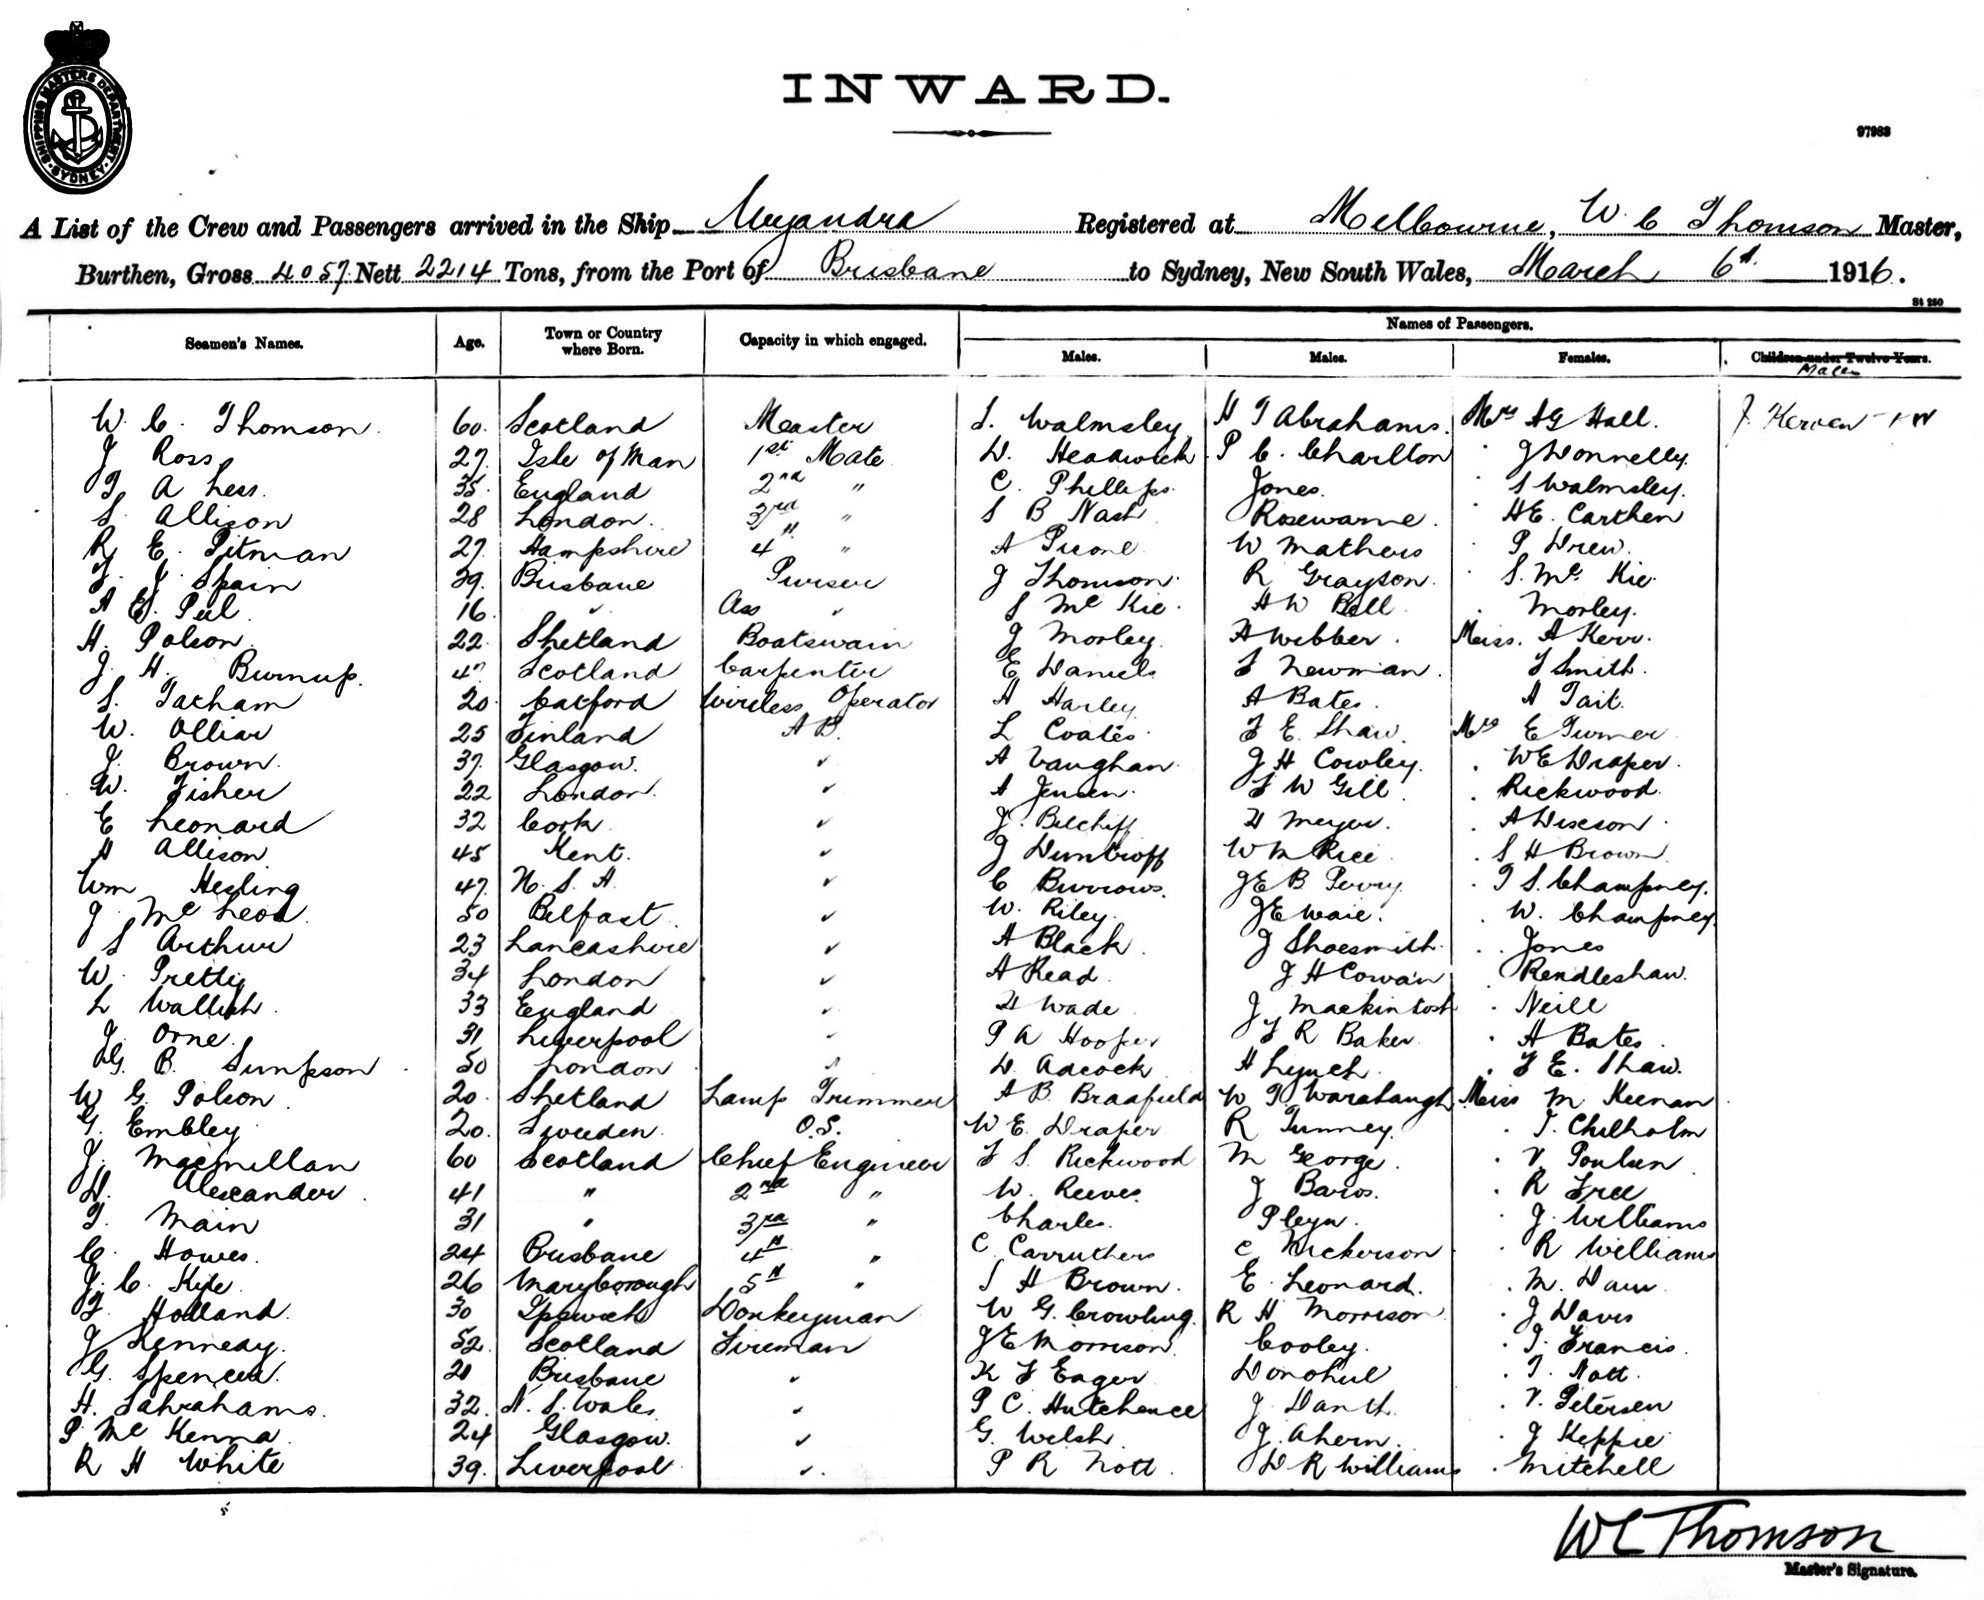 SHIPPING MASTERS DEPARTMENT SYDNEY
INWARD.
97983
A List of the Crew and Passengers arrived in the Ship Wyandra Registered at Melbourne, W. C Thomson Master,
Burthen, Gross 4057 Nett 2214 Tons, from the Port of Brisbane to Sydney, New South Wales, March 6th 1916.
St 250
Seamen's Names. Age. Town or Country where Born. Capacity in which engaged. Names of Passengers.
Males. Males. Females. Children under Twelve Years.
Males
W. C. Thomson. 60. Scotland Master S. Walmsley H T Abrahams. Mrs AG Hall. J.
J Ross 27. Isle of Man 1st Mate D. Headwick P C. Charlton " J Donnelly.
T A Less. 35. England 2nd " C. Phillips. Jones. " S Walmsley.
S. Allison 28 London. 3rd " S B Nash Rosewarne. " HE. Carthen
R E. Pitman 27. Hampshire 4th " A Picone. W Mathers " P Drew.
F. J. Spain 39. Brisbane Purser J Thomson. R Grayson. " S. Mc Kie.
A E. Peel 16. " Ass " S Mc Kie. A W Bell. " Morley.
H. Polson. 22. Shetland Boatswain J Morley. A Webber. Miss. A Kerr.
J. H. Burnup. Scotland Carpenter E Daniels F Newman. F Smith.
S. Tatham 20 Catford Wireless Operator A Harley A Bates. A Tait.
W. Olliar 25 Finland AB. L Coates. F E. Shaw. Mrs E Turner
J. Brown. 37. Glasgow. " A Vaughan. J H Cowley. " WE Draper.
W. Fisher 22 London. " A Jensen. F W Gill. " Rickwood.
E Leonard 32 Cork. " J. Belchiff D Meyer. " A Dixson.
A Allison. 45 Kent. " J Duntroff W M Rice. " S H Brown.
Wm Hesling 47. U. S. A. " C Burrows. J E B Perry. " T S. Champney.
J Mc Leod. 50 Belfast " W. Riley. J E Waie. " W. Champney.
S Arthur 23 Lancashire " A Black. J Shoesmith. " Jones
W. Pretty 34 London " A Read. J H Cowan " Rendleshaw.
L Wallish. 33 England " D Wade J Mackintosh " Neill
J. Orne. 31 Liverpool " P A Hooper F R Baker " A Bates.
G. B. Simpson 50 London " D. Adcock. H Lynch. " F E. Shaw.
W G. Polson. 20. Shetland Lamp Trimmer A B. Bradfield W T Warabaugh Miss M Keenan
G. Embley 20. Sweden. O.S. W E. Draper R Tunney. " T. Chilholm
J. Macmillan 60 Scotland Chief Engineer F S. Rickwood M George. " V. Poulsen
D. Alexander. 41 " 2nd " W. Reeves. J Baros. " R Free
T. Main 31 " 3rd " Charles. Pleyn. " J. Williams
C. Howes. 24 Brisbane 4th " C. Carruthers C Nickerson " R Williams
J. C. Kide 26 Maryborough 5th " S H Brown. E. Leonard. " M. Daw
T. Holland. 30 Ipswich Donkeyman W G. Crowling. R H Morrison. " J Davis
J Kennedy. 52. Scotland Fireman J E Morrison. Cooley. " T. Francis.
G. Spencer. 21 Brisbane " K F Eager. Donohue " T. Nott.
H. Sahrahams. 32. N. S. Wales. " P C. Hutchence J. Danth. " V. Petersen
P. Mc Kenna. 24 Glasgow. " G. Welsh. J. Ahern. " J Keppie
R H White 39. Liverpool " P R Nott. D R Williams " Mitchell
WC Thomson
Master's Signature.